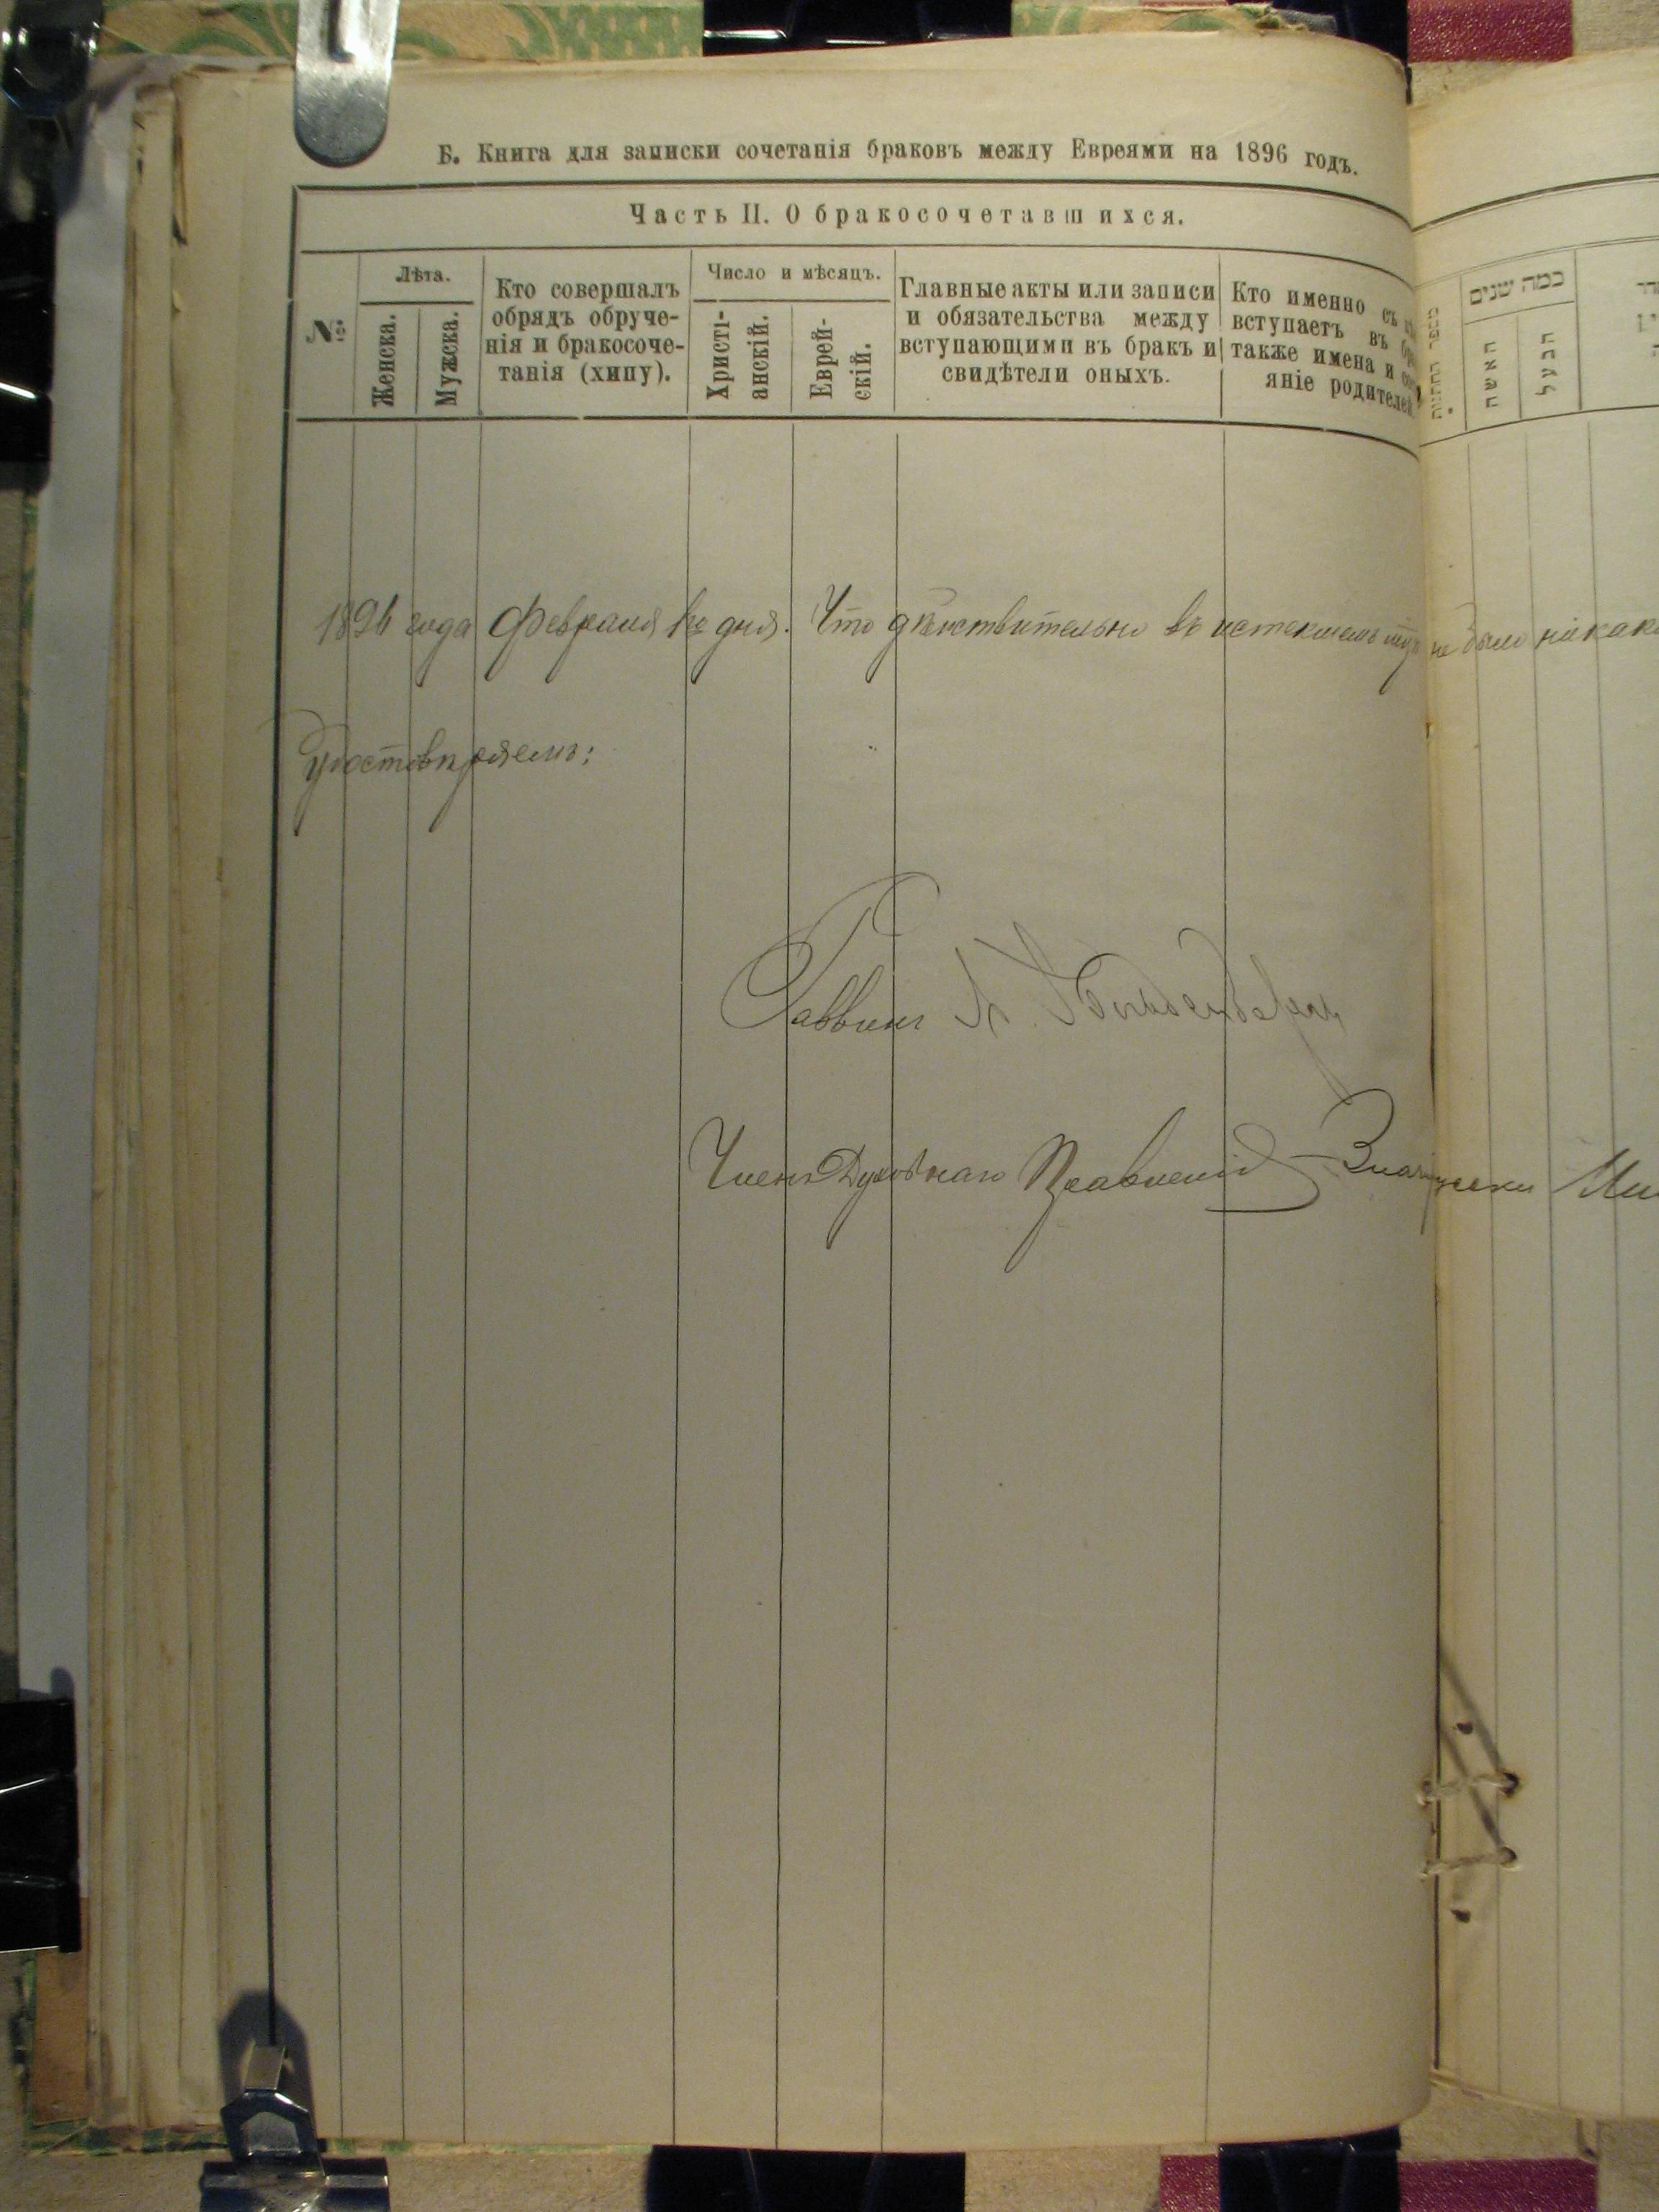 Б. Книга для записки сочетанія браковъ между Евреями на 1896 годъ.
Часть II. О бракосочетавшихся.
№
Лѣта.
Женска.
Мужска.
Кто совершалъ
обрядъ обруче-
нія и бракосоче-
танія (хипу).
Число и мѣсяцъ.
Христі-
анскій.
Еврей-
скій.
Главные акты или записи
и обязательства между
вступающими въ бракъ и
свидѣтели оныхъ.
Кто именно съ
вступаетъ въ
также имена и
яніе родителей
כמה שנים
האשה
הבעל
1896 года Февраля 1го дня. Что дѣйствительно въ истекшемъ не было никак
Удостовѣряемъ:
Раввинъ
Членъ Духовнаго Правленія